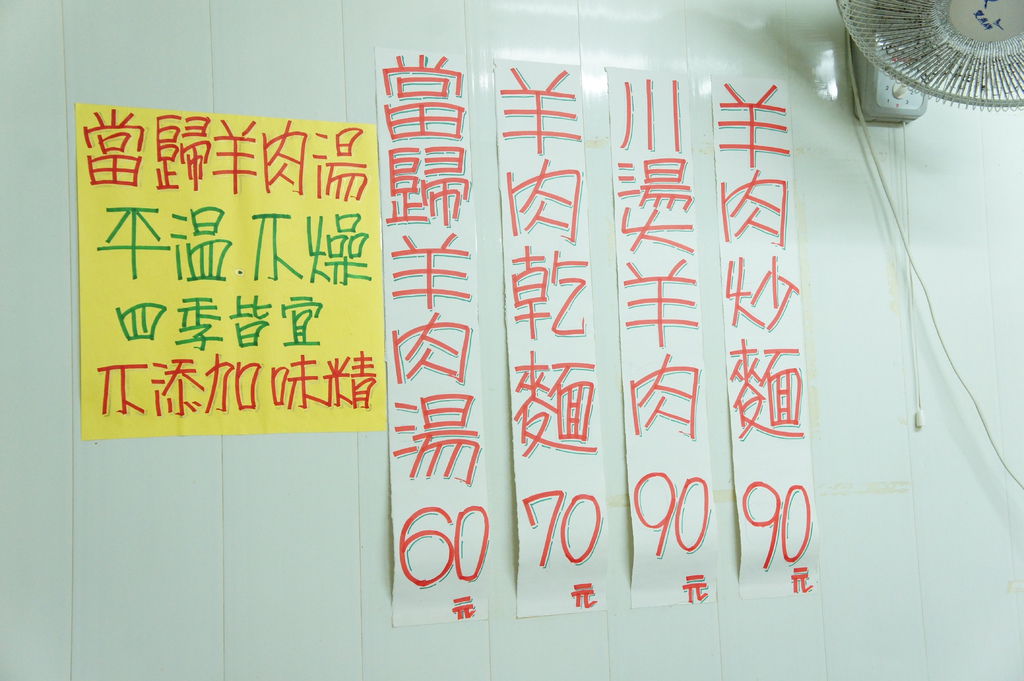 當歸羊肉湯
平溫不燥
四季皆宜
不添加味精
當歸羊肉湯 60元
羊肉乾麵 70元
川燙羊肉 90元
羊肉炒麵 90元